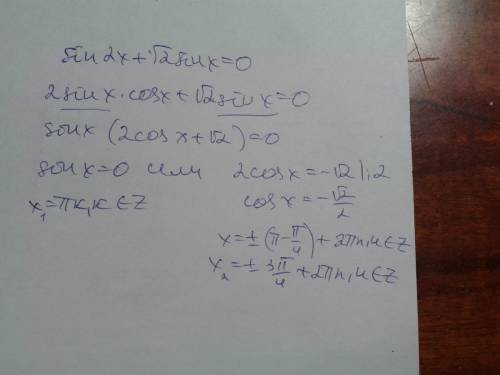 sin 2x + √2 sin x = 0
2 sin x · cos x + √2 sin x = 0
sin x (2cos x + √2) = 0
sin x = 0 или 2cos x = -√2 |:2
x₁ = πk, k ∈ Z cos x = -√2/2
x = ± (π - π/4) + 2πn, n ∈ Z
x₂ = ± 3π/4 + 2πn, n ∈ Z